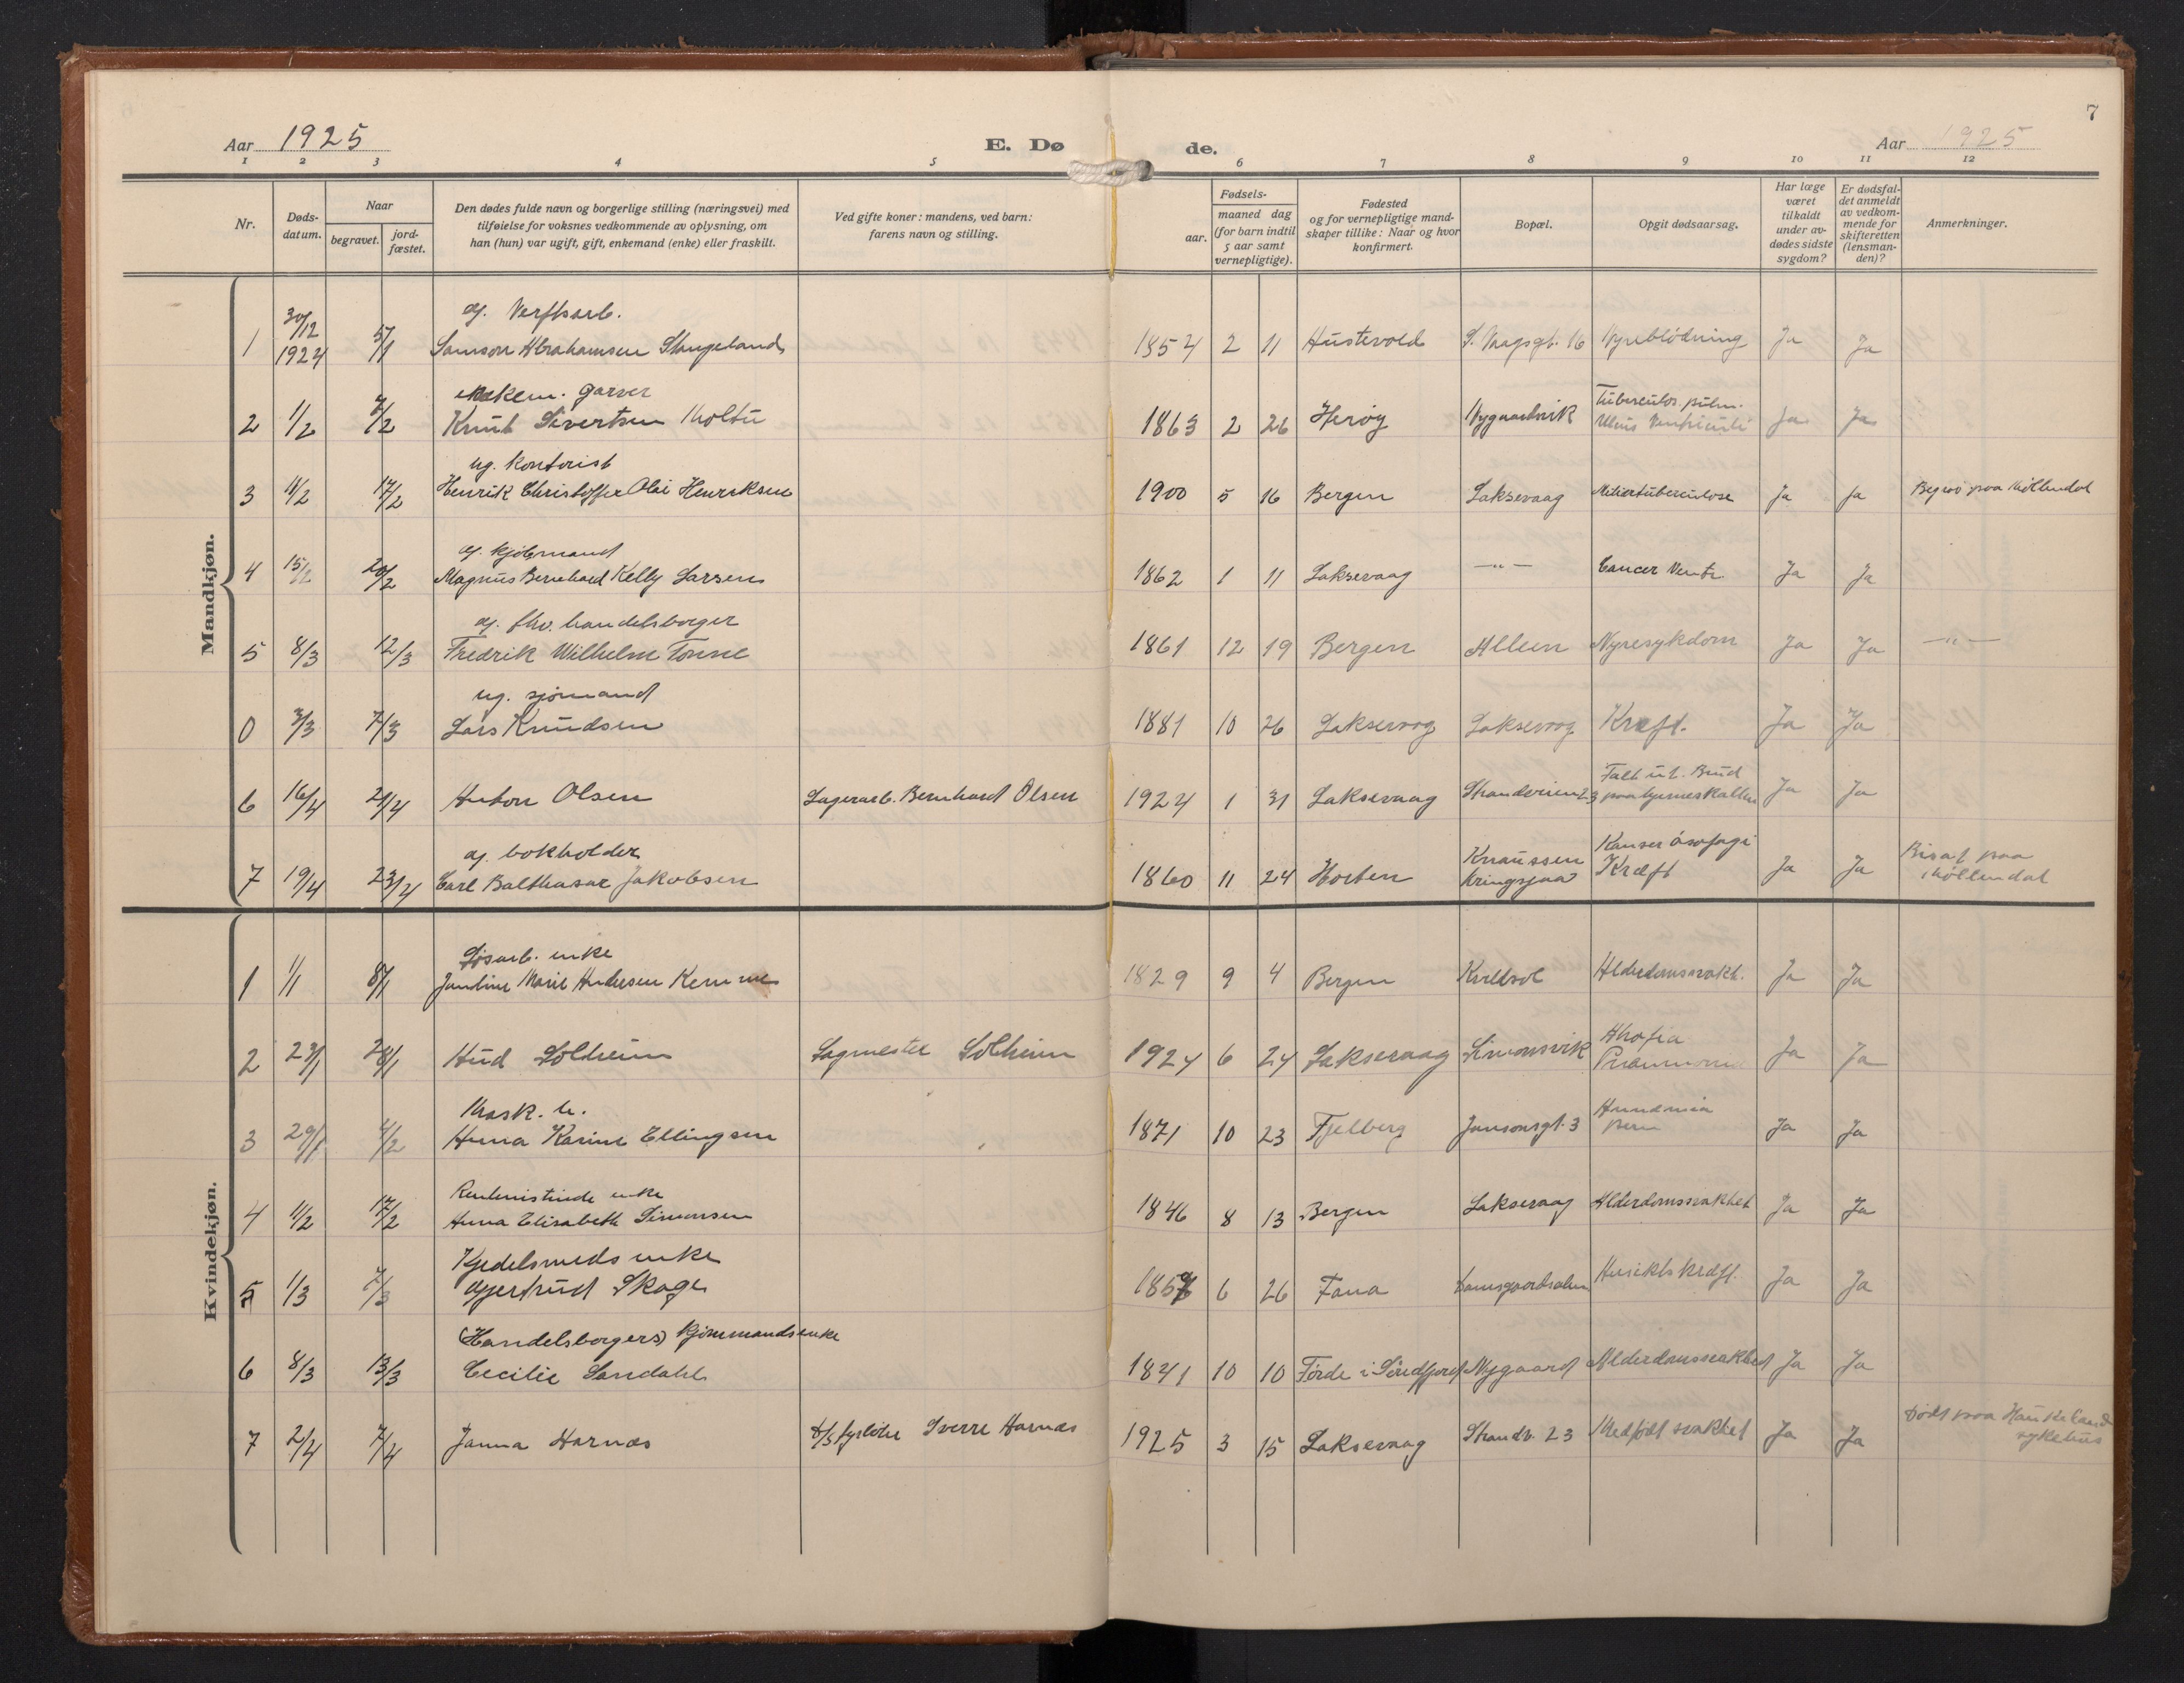 7
Aar 1925
E. Dø de.
Aar 1925
1 2 3 4 5 6 7 8 9 10 11 12
Nr.
Døds-
datum.
Naar
begravet.
jord-
fæstet.
Den dødes fulde navn og borgerlige stilling (næringsvei) med
tilføielse for voksnes vedkommende av oplysning, om
han (hun) var ugift, gift, enkemand (enke) eller fraskilt.
Ved gifte koner: mandens, ved barn:
farens navn og stilling.
Fødsels-
aar.
maaned dag
(for barn indtil
5 aar samt
vernepligtige).
Fødested
og for vernepligtige mand-
skaper tillike: Naar og hvor
konfirmert.
Bopæl.
Opgit dødsaarsag.
Har læge
været
tilkaldt
under av-
dødes sidste
sygdom?
Er dødsfal-
det anmeldt
av vedkom-
mende for
skifteretten
(lensman-
den)?
Anmerkninger.
Mandkjøn.
30/12 g. Verftsarb.
1 1924 5/1 Samson Abrahamsen Stangeland 1854 2 11 Hustevold S. Vaagsgt. 16 Nyreblødning Ja Ja
enkem. garver Tuberculos. pulm.
2 1/2 7/2 Knut Sivertsen Moltu 1863 2 26 Herøy Nygaardsvik Ulcus Ventriculi Ja Ja
ug. kontorist
3 11/2 17/2 Henrik Christoffer Olai Henriksen 1900 5 16 Bergen Laksevaag Miliærtuberculose Ja Ja Begr. paa Møllendal
g. kjøbmand
4 15/2 20/2 Magnus Bernhard Kelly Larsen 1862 1 11 Laksevaag —"— Cancer Ventr. Ja Ja
g. fhv. handelsborger
5 8/3 12/3 Fredrik Wilhelm Tonne 1861 12 19 Bergen Alleen Nyresykdom Ja Ja —"—
ug. sjømand
0 3/3 7/3 Lars Knudsen 1881 10 26 Laksevaag Laksevaag Kræft. Ja Ja
Falt ut. Brud
6 16/4 21/4 Anton Olsen Lagerarb. Bernhard Olsen 1924 1 31 Laksevaag Strandveien 23 paa hjerneskallen Ja Ja
g. bokholder Knaussen Kanser øsofagi Bisat paa
7 19/4 23/4 Carl Balthasar Jakobsen 1860 11 24 Horten Kringsjaa Kræft Ja Ja Møllendal
Kvindekjøn.
Løsarb. enke
1 1/1 8/1 Jandine Marie Andersen 1829 9 4 Bergen Alderdomssvakh. Ja Ja
2 23/1 28/1 Aud Solheim Sagmester Solheim 1924 6 24 Laksevaag Simonsvik Atrofia Ja Ja
Mask. h.
3 29/1 4/2 Anna Karine Ellingsen 1871 10 23 Fjelberg Jansonsgt. 3 Ja Ja
Rentenistinde enke
4 11/2 17/2 Anna Elisabeth Simonsen 1846 8 13 Bergen Laksevaag Alderdomssvakhet Ja Ja
Kjedelsmeds enke
5 1/3 7/3 Gjertrud Skage 6 26 Fana Damsgaardsalm Ansiktskræft. Ja Ja
(Handelsborgers) kjømmandsenke
6 8/3 13/3 Cecilie Sandahl 1841 10 10 Førde i Søndfjord Nygaard Alderdomssvakhed Ja Ja
Død paa Haukeland
7 2/4 7/4 Janna Harnæs D/S fyrbøter Sverre Harnæs 1925 3 15 Laksevaag Strandv. 23 Medfødt svakhet Ja Ja sykehus